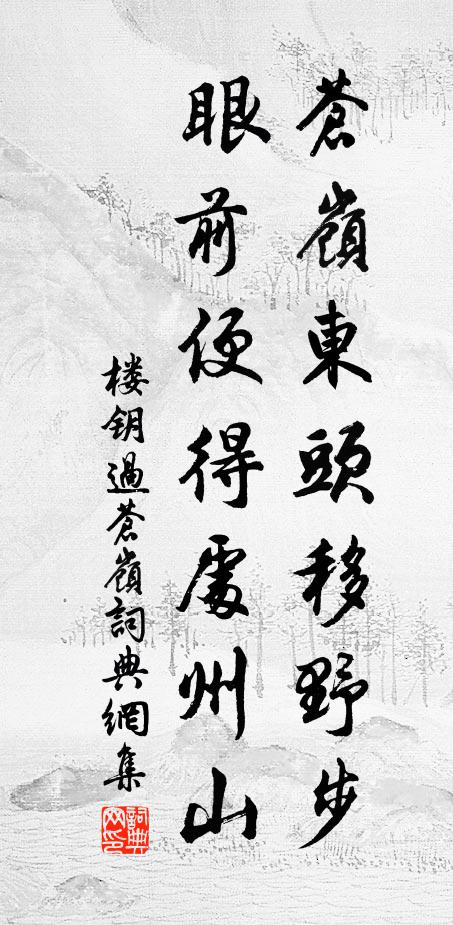 蒼嶺東頭移野步
眼前便得處州山
楼钥過蒼嶺詞典網集
詞典網印